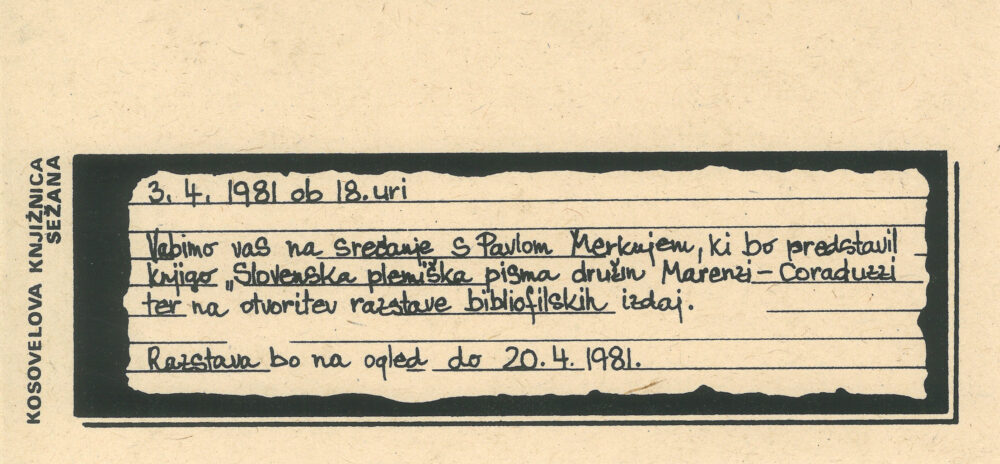 KOSOVELOVA KNJIŽNICA
SEŽANA
3. 4. 1981 ob 18. uri
Vabimo vas na srečanje s Pavlom Merkujem, ki bo predstavil
knjigo „Slovenska plemiška pisma družin Marenzi – Coraduzzi
ter na otvoritev razstave bibliofilskih izdaj.
Razstava bo na ogled do 20. 4. 1981.